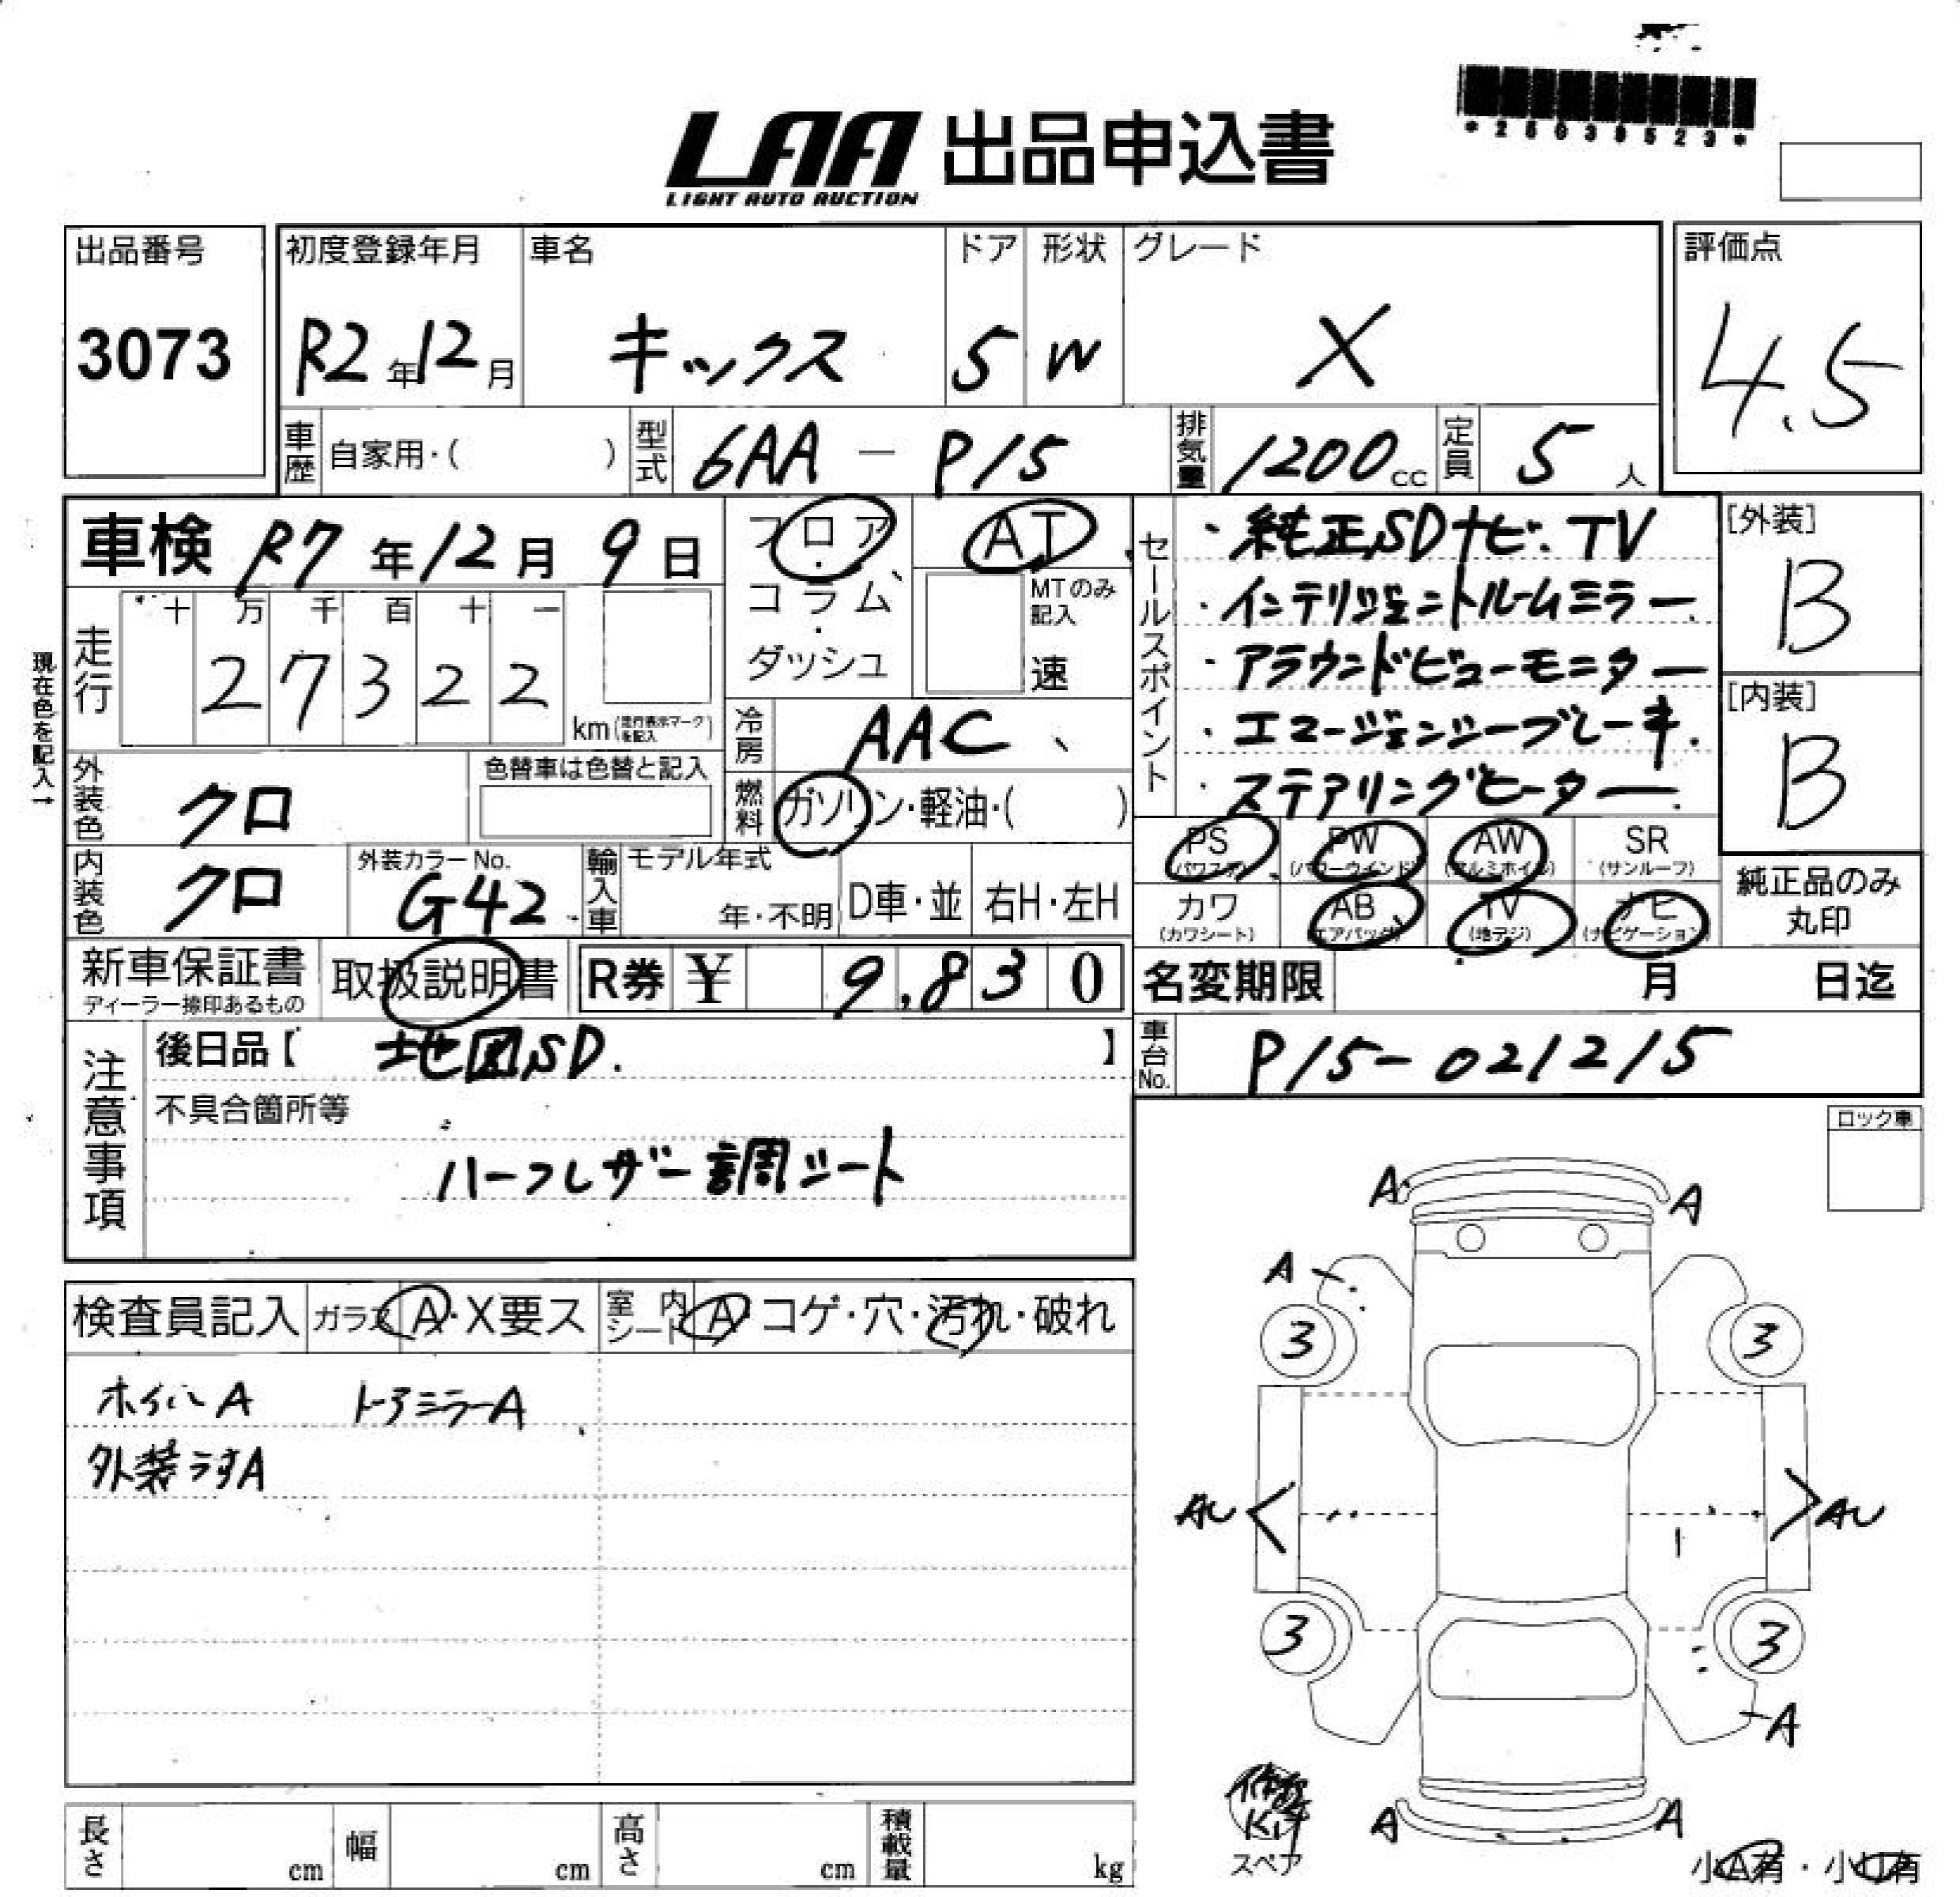 *25039523*
LAA 出品申込書
LIGHT AUTO AUCTION
出品番号 初度登録年月 車名 ドア 形状 グレード 評価点
3073 R2年12月 キックス 5 W X 4.5
車歴 自家用・( ) 型式 6AA - P15 排気量 1200cc 定員 5人
車検 R7年12月9日 フロア AT
コラム MTのみ記入
ダッシュ 速
走行 十 万 千 百 十 一
27322
km (走行表示マークを記入)
現在色を記入→
冷房 AAC
外装色 クロ 色替車は色替と記入
燃料 ガソリン・軽油・( )
セールスポイント
・純正SDナビ. TV
・インテリジェントルームミラー
・アラウンドビューモニター
・エマージェンシーブレーキ.
・ステアリングヒーター
[外装]
B
[内装]
B
内装色 クロ 外装カラーNo. G42 輸入車 モデル年式 年・不明 D車・並 右H・左H
PS (パワステ) PW (パワーウインド) AW (アルミホイル) SR (サンルーフ)
カワ (カワシート) AB (エアバッグ) TV (地デジ) ナビ (ナビゲーション)
純正品のみ
丸印
新車保証書 取扱説明書 R券 ¥ 9,830
ディーラー捺印あるもの
名変期限 月 日迄
車台No. P15-021215
注意事項
後日品【 地図SD. 】
不具合箇所等
ハーフレザー調シート
ロック車
検査員記入 ガラス A・X要ス 室内シート A・コゲ・穴・汚れ・破れ
ホイルA ドアミラーA
外装うすA
A A
A
3 3
AU AU
3 3
A
A A
スペア
小A有・小U有
長さ cm 幅 cm 高さ cm 積載量 kg